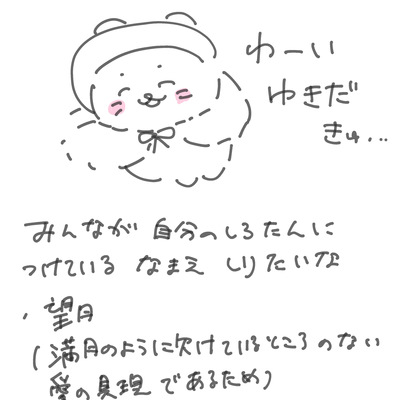 わーい
ゆきだ
きゅ...
みんなが 自分のしろたんに
つけている なまえ しりたいな
・望月
(満月のように欠けているところのない
愛の具現であるため)